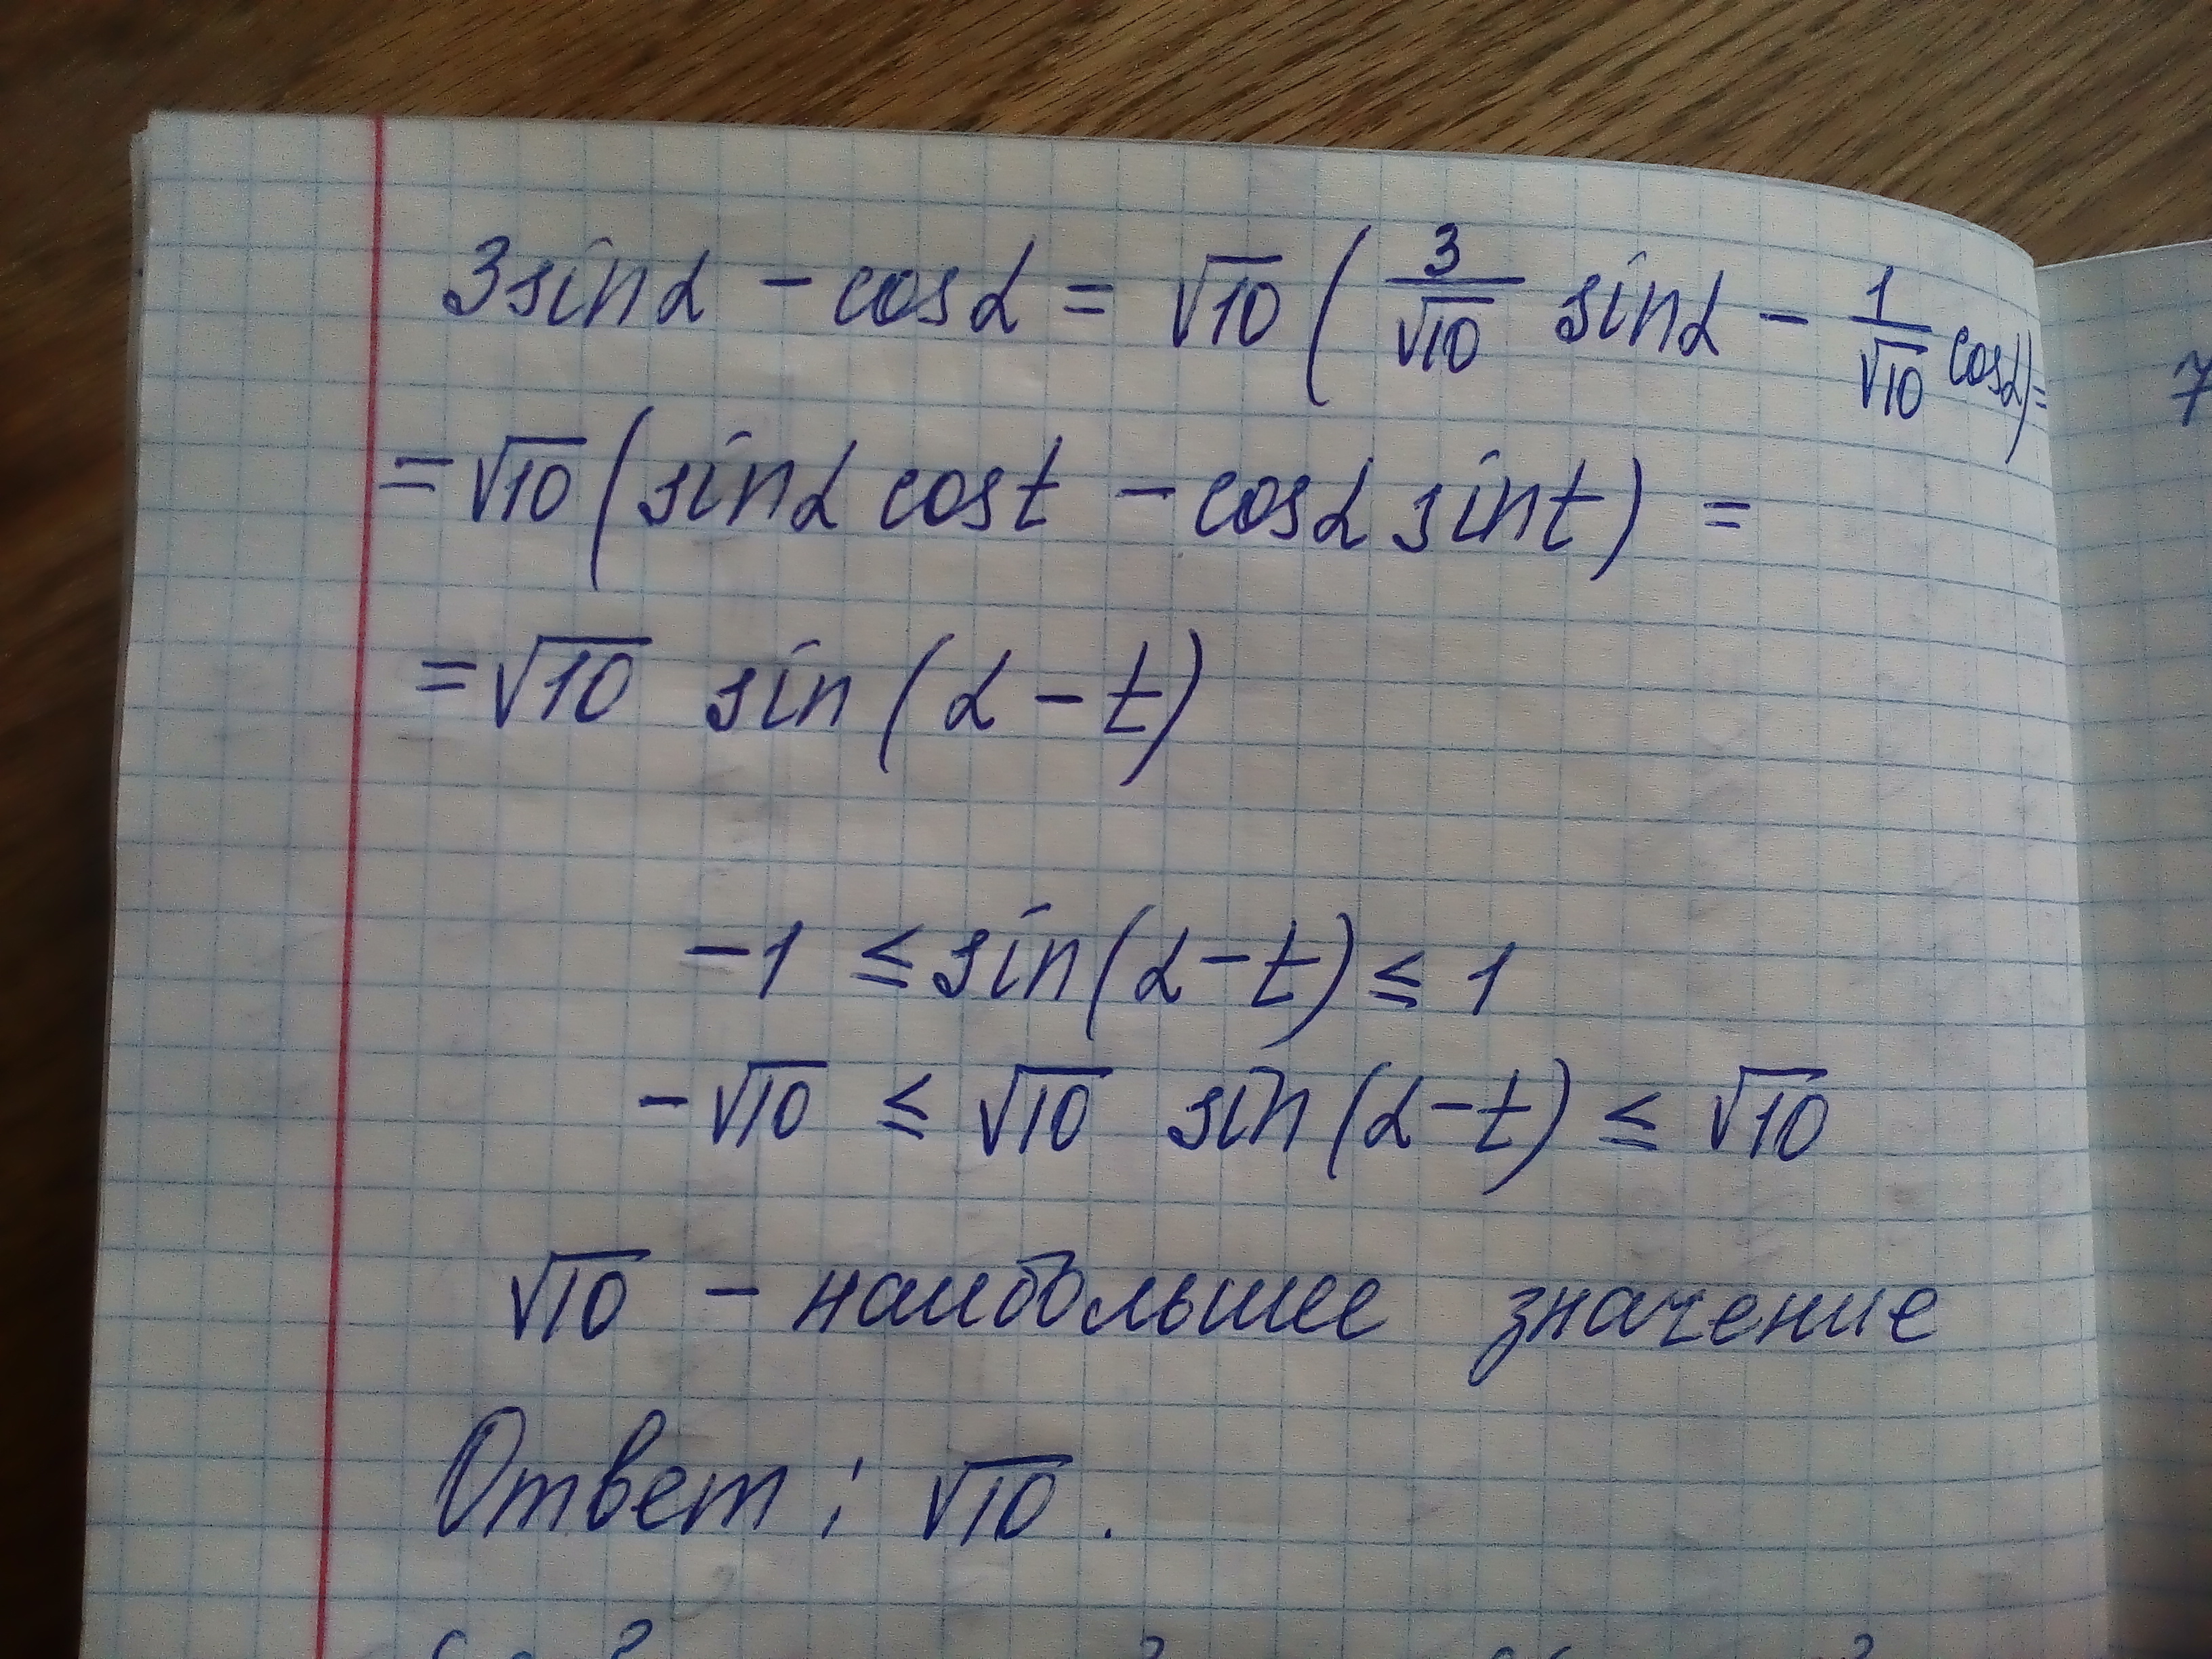 3sinα − cosα = √10 ( 3/√10 sinα − 1/√10 cosα) =
= √10 ( sinα cost − cosα sint) =
= √10 sin (α − t)
−1 ≤ sin(α − t) ≤ 1
−√10 ≤ √10 sin(α − t) ≤ √10
√10 − наибольшее значение
Ответ : √10 .
7